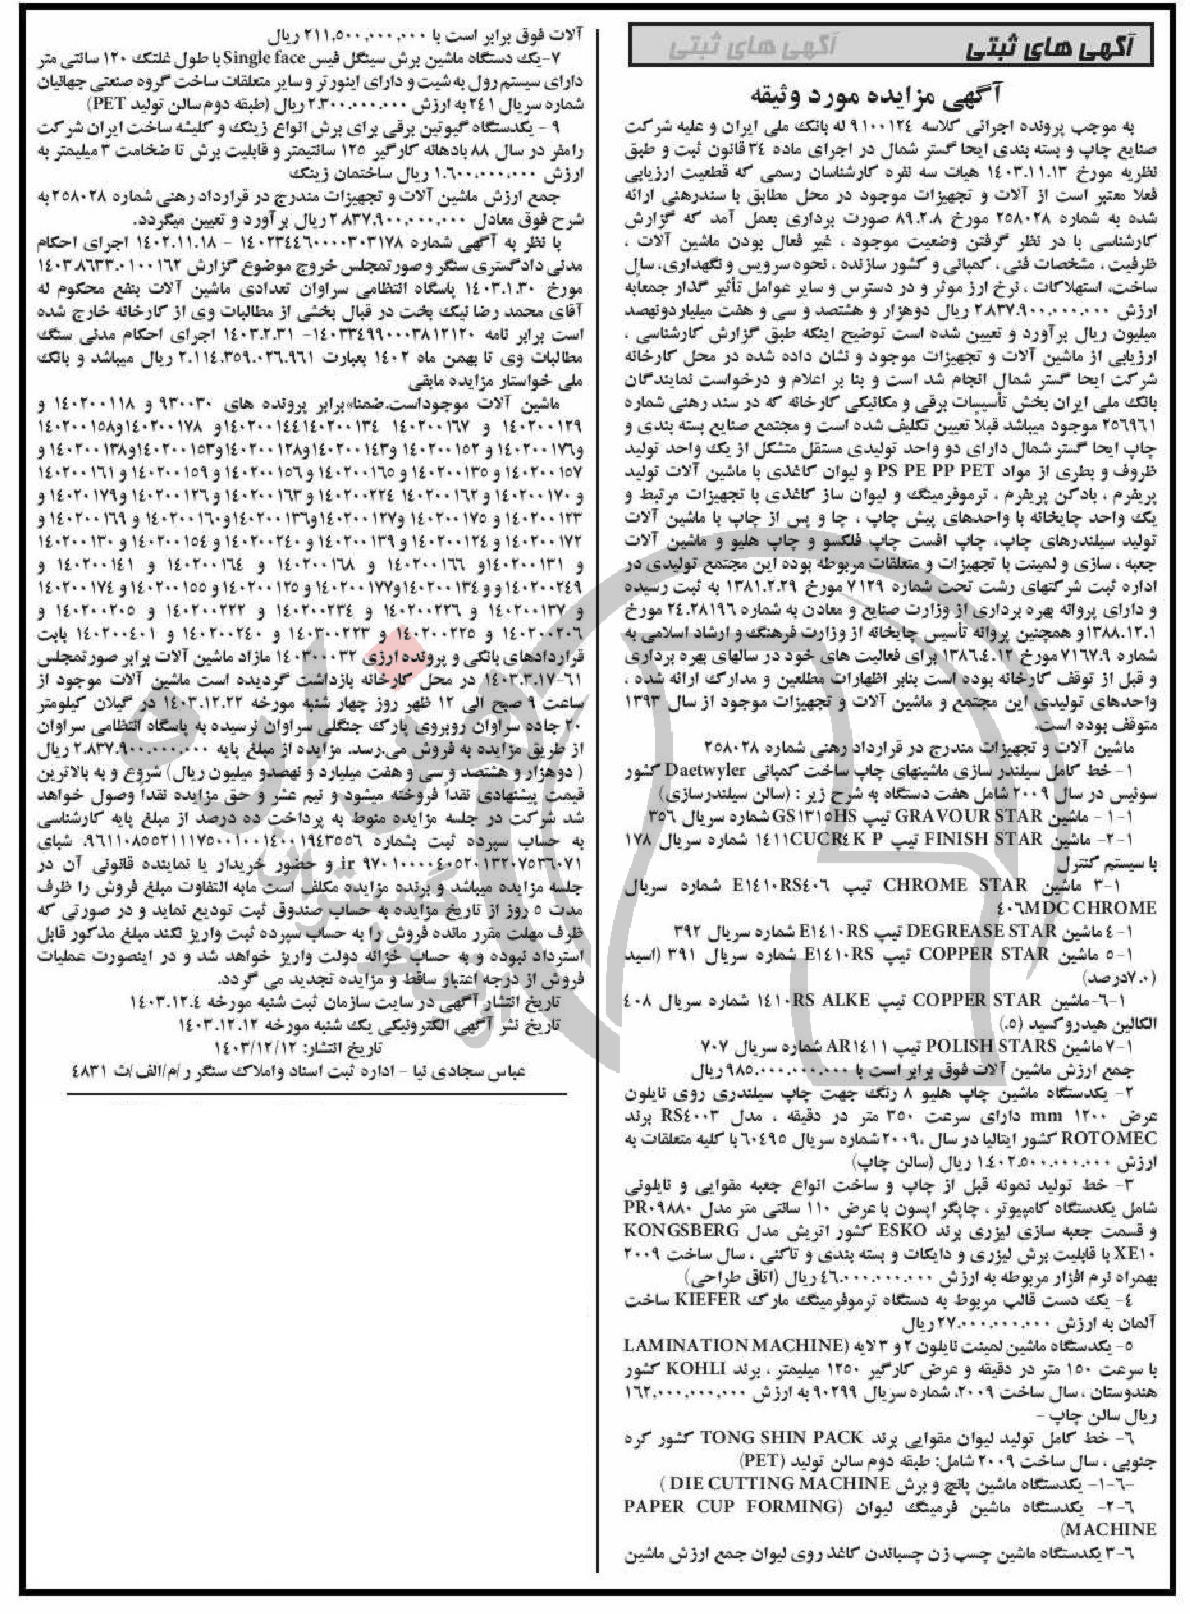 آگهی های ثبتی
آگهی های ثبتی
آگهی مزایده مورد وثیقه
به موجب پرونده اجرائی کلاسه ۹۱۰۰۱۲۴ له بانک ملی ایران و علیه شرکت
صنایع چاپ و بسته بندی ایحا گستر شمال در اجرای ماده ۳۴ قانون ثبت و طبق
نظریه مورخ ۱۴۰۳.۱۱.۱۳ هیات سه نفره کارشناسان رسمی که قطعیت ارزیابی
فعلا معتبر است از آلات و تجهیزات موجود در محل مطابق با سندرهنی ارائه
شده به شماره ۲۵۸۰۲۸ مورخ ۸۹.۲.۸ صورت برداری بعمل آمد که گزارش
کارشناسی با در نظر گرفتن وضعیت موجود ، غیر فعال بودن ماشین آلات ،
ظرفیت ، مشخصات فنی ، کمپانی و کشور سازنده ، نحوه سرویس و نگهداری، سال
ساخت، استهلاکات ، نرخ ارز موثر و در دسترس و سایر عوامل تأثیر گذار جمعابه
ارزش ۲.۸۳۷.۹۰۰.۰۰۰.۰۰۰ ریال دوهزار و هشتصد و سی و هفت میلیارد و نهصد
میلیون ریال برآورد و تعیین شده است توضیح اینکه طبق گزارش کارشناسی ،
ارزیابی از ماشین آلات و تجهیزات موجود و نشان داده شده در محل کارخانه
شرکت ایحا گستر شمال انجام شد است و بنا بر اعلام و درخواست نمایندگان
بانک ملی ایران بخش تأسیسات برقی و مکانیکی کارخانه که در سند رهنی شماره
۲۵۶۹۶۱ موجود میباشد قبلاً تعیین تکلیف شده است و مجتمع صنایع بسته بندی و
چاپ ایحا گستر شمال دارای دو واحد تولیدی مستقل متشکل از یک واحد تولید
ظروف و بطری از مواد PS PE PP PET و لیوان کاغذی با ماشین آلات تولید
پریفرم ، بادکن پریفرم ، ترموفرمینگ و لیوان ساز کاغذی با تجهیزات مرتبط و
یک واحد چاپخانه با واحدهای پیش چاپ ، چا و پس از چاپ با ماشین آلات
تولید سیلندرهای چاپ، چاپ افست چاپ فلکسو و چاپ هلیو و ماشین آلات
جعبه ، سازی و لمینت با تجهیزات و متعلقات مربوطه بوده این مجتمع تولیدی در
اداره ثبت شرکتهای رشت تحت شماره ۷۱۲۹ مورخ ۱۳۸۱.۲.۲۹ به ثبت رسیده
و دارای پروانه بهره برداری از وزارت صنایع و معادن به شماره ۲۴.۲۸۱۹۶ مورخ
۱۳۸۸.۱۲.۱و همچنین پروانه تأسیس چاپخانه از وزارت فرهنگ و ارشاد اسلامی به
شماره ۷۱۶۷.۹ مورخ ۱۳۸۶.۴.۱۲ برای فعالیت های خود در سالهای بهره برداری
و قبل از توقف کارخانه بوده است بنابر اظهارات مطلعین و مدارک ارائه شده ،
واحدهای تولیدی این مجتمع و ماشین آلات و تجهیزات موجود از سال ۱۳۹۳
متوقف بوده است.
ماشین آلات و تجهیزات مندرج در قرارداد رهنی شماره ۲۵۸۰۲۸
۱- خط کامل سیلندر سازی ماشینهای چاپ ساخت کمپانی Daetwyler کشور
سوئیس در سال ۲۰۰۹ شامل هفت دستگاه به شرح زیر : (سالن سیلندرسازی)
۱-۱ - ماشین GRAVOUR STAR تیپ GS۱۳۱۵HS شماره سریال ۳۵۶
۱-۲- ماشین FINISH STAR تیپ ۱۴۱۱CUCR۴K P شماره سریال ۱۷۸
با سیستم کنترل
۱-۳ ماشین CHROME STAR تیپ E۱۴۱۰RS۴۰۶ شماره سریال
۴۰۶MDC CHROME
۱-۴ ماشین DEGREASE STAR تیپ E۱۴۱۰RS شماره سریال ۳۹۲
۱-۵ ماشین COPPER STAR تیپ E۱۴۱۰RS شماره سریال ۳۹۱ (اسید
۷.۰درصد)
۱-۶- ماشین COPPER STAR تیپ ۱۴۱۰RS ALKE شماره سریال ۴۰۸
الکالین هیدروکسید (۵.)
۱-۷ ماشین POLISH STARS تیپ AR۱۴۱۱ شماره سریال ۷۰۷
جمع ارزش ماشین آلات فوق برابر است با ۹۸۵.۰۰۰.۰۰۰.۰۰۰ ریال
۲- یکدستگاه ماشین چاپ هلیو ۸ رنگ جهت چاپ سیلندری روی نایلون
عرض ۱۲۰۰ mm دارای سرعت ۳۵۰ متر در دقیقه ، مدل RS۴۰۰۳ برند
ROTOMEC کشور ایتالیا در سال ،۲۰۰۹ شماره سریال ۶۰۴۹۵ با کلیه متعلقات به
ارزش ۱.۴۰۲.۵۰۰.۰۰۰.۰۰۰ ریال (سالن چاپ)
۳- خط تولید نمونه قبل از چاپ و ساخت انواع جعبه مقوایی و نایلونی
شامل یکدستگاه کامپیوتر ، چاپگر اپسون با عرض ۱۱۰ سانتی متر مدل PR۰۹۸۸۰
و قسمت جعبه سازی لیزری برند ESKO کشور اتریش مدل KONGSBERG
XE۱۰ با قابلیت برش لیزری و دایکات و بسته بندی و تاکنی ، سال ساخت ۲۰۰۹
بهمراه نرم افزار مربوطه به ارزش ۴۶.۰۰۰.۰۰۰.۰۰۰ ریال (اتاق طراحی)
۴- یک دست قالب مربوط به دستگاه ترموفرمینگ مارک KIEFER ساخت
آلمان به ارزش ۲۷.۰۰۰.۰۰۰.۰۰۰ ریال
۵- یکدستگاه ماشین لمینت نایلون ۲ و ۳ لایه (LAMINATION MACHINE
با سرعت ۱۵۰ متر در دقیقه و عرض کارگیر ۱۲۵۰ میلیمتر ، برند KOHLI کشور
هندوستان ، سال ساخت ۲۰۰۹، شماره سریال ۹۰۲۹۹ به ارزش ۱۶۲,۰۰۰,۰۰۰,۰۰۰
ریال سالن چاپ -
۶- خط کامل تولید لیوان مقوایی برند TONG SHIN PACK کشور کره
جنوبی ، سال ساخت ۲۰۰۹ شامل: طبقه دوم سالن تولید (PET)
-۱-۶- یکدستگاه ماشین پانچ و برش DIE CUTTING MACHINE )
۲-۶- یکدستگاه ماشین فرمینگ لیوان (PAPER CUP FORMING
MACHINE)
۳-۶ یکدستگاه ماشین چسب زن چسباندن کاغذ روی لیوان جمع ارزش ماشین
آلات فوق برابر است با ۲۱۱,۵۰۰,۰۰۰,۰۰۰ ریال
۷-یک دستگاه ماشین برش سینگل فیس Single face با طول غلتک ۱۲۰ سانتی متر
دارای سیستم رول به شیت و دارای اینورتر و سایر متعلقات ساخت گروه صنعتی جهانیان
شماره سریال ۲۴۱ به ارزش ۲.۳۰۰.۰۰۰.۰۰۰ ریال (طبقه دوم سالن تولید PET)
۹ - یکدستگاه گیوتین برقی برای برش انواع زینک و کلیشه ساخت ایران شرکت
رامفر در سال ۸۸ بادهانه کارگیر ۱۲۵ سانتیمتر و قابلیت برش تا ضخامت ۳ میلیمتر به
ارزش ۱.۶۰۰.۰۰۰.۰۰۰ ریال ساختمان زینک
جمع ارزش ماشین آلات و تجهیزات مندرج در قرارداد رهنی شماره ۲۵۸۰۲۸ به
شرح فوق معادل ۲.۸۳۷.۹۰۰.۰۰۰.۰۰۰ ریال برآورد و تعیین میگردد.
با نظر به آگهی شماره ۱۴۰۲۳۴۴۶۰۰۰۰۳۰۳۱۷۸ - ۱۴۰۲.۱۱.۱۸ اجرای احکام
مدنی دادگستری سنگر و صورتمجلس خروج موضوع گزارش ۱۴۰۳.۸۶۳۳.۰۱۰۰۱۶۲
مورخ ۱۴۰۳.۱.۳۰ پاسگاه انتظامی سراوان تعدادی ماشین آلات بنفع محکوم له
آقای محمد رضا نیک بخت در قبال بخشی از مطالبات وی از کارخانه خارج شده
است برابر نامه ۱۴۰۳۳۴۹۹۰۰۰۳۸۱۲۱۲۰- ۱۴۰۳.۲.۳۱ اجرای احکام مدنی سنگ
مطالبات وی تا بهمن ماه ۱۴۰۲ بعبارت ۲.۱۱۴.۳۵۹.۰۲۶.۹۶۱ ریال میباشد و بانک
ملی خواستار مزایده مابقی
ماشین آلات موجوداست.ضمنا»برابر پرونده های ۹۳۰۰۳۰ و ۱۴۰۲۰۰۱۱۸ و
۱۴۰۲۰۰۱۲۹ و ۱۴۰۲۰۰۱۶۷ ۱۴۰۲۰۰۱۳۴ ۱۴۰۲۰۰۱۴۴و ۱۴۰۲۰۰۱۷۸ و۱۴۰۲۰۰۱۵۸
و۱۴۰۲۰۰۱۷۶ و ۱۴۰۲۰۰۱۵۲ و۱۴۰۲۰۰۱۴۳ و۱۴۰۲۰۰۱۲۸ و۱۴۰۲۰۰۱۵۳ و۱۴۰۲۰۰۱۳۸ و
۱۴۰۲۰۰۱۵۷ و ۱۴۰۲۰۰۱۳۵ و ۱۴۰۲۰۰۱۶۵ و ۱۴۰۲۰۰۱۵۶ و ۱۴۰۲۰۰۱۵۹ و ۱۴۰۲۰۰۱۶۱
و ۱۴۰۲۰۰۱۷۰ و ۱۴۰۲۰۰۱۶۲ ۱۴۰۲۰۰۲۲۴ و ۱۴۰۲۰۰۱۶۳ و ۱۴۰۲۰۰۱۲۶ و ۱۴۰۲۰۰۱۷۹ و
۱۴۰۲۰۰۱۲۳ و ۱۴۰۲۰۰۱۷۵ و ۱۴۰۲۰۰۱۲۷ و۱۴۰۲۰۰۱۳۶ و۱۴۰۲۰۰۱۶۰ و ۱۴۰۲۰۰۱۶۹ و
۱۴۰۲۰۰۱۷۲ و ۱۴۰۲۰۰۱۲۴ و ۱۴۰۲۰۰۱۳۹ و ۱۴۰۲۰۰۲۴۰ و ۱۴۰۲۰۰۱۵۴ و ۱۴۰۲۰۰۱۳۰
و ۱۴۰۲۰۰۱۳۱و ۱۴۰۲۰۰۱۶۶ و ۱۴۰۲۰۰۱۶۸ و ۱۴۰۲۰۰۱۶۴ و ۱۴۰۲۰۰۱۴۱ و
۱۴۰۲۰۰۲۴۹ و و ۱۴۰۲۰۰۱۳۴ و۱۴۰۲۰۰۱۷۷ و ۱۴۰۲۰۰۱۲۵ و ۱۴۰۲۰۰۱۵۵ و ۱۴۰۲۰۰۱۷۴
و ۱۴۰۲۰۰۱۳۷ و ۱۴۰۲۰۰۲۲۶ و ۱۴۰۲۰۰۲۳۴ و ۱۴۰۲۰۰۲۲۲ و ۱۴۰۲۰۰۲۰۵ و
۱۴۰۲۰۰۲۰۶ و ۱۴۰۲۰۰۲۲۵ و ۱۴۰۳۰۰۲۲۳ و ۱۴۰۲۰۰۲۴۰ و ۱۴۰۲۰۰۴۰۱ بابت
قراردادهای بانکی و پرونده ارزی ۱۴۰۳۰۰۰۳۲ مازاد ماشین آلات برابر صورتمجلس
۱۴۰۳.۳.۱۷-۶۱ در محل کارخانه بازداشت گردیده است ماشین آلات موجود از
ساعت ۹ صبح الی ۱۲ ظهر روز چهار شنبه مورخه ۱۴۰۳.۱۲.۲۲ در گیلان کیلومتر
۲۰ جاده سراوان روبروی پارک جنگلی سراوان نرسیده به پاسگاه انتظامی سراوان
از طریق مزایده به فروش می.رسد. مزایده از مبلغ پایه ۲.۸۳۷.۹۰۰.۰۰۰.۰۰۰ ریال
( دوهزار و هشتصد و سی و هفت میلیارد و نهصدو میلیون ریال) شروع و به بالاترین
قیمت پیشنهادی نقداً فروخته میشود و نیم عشر و حق مزایده نقداً وصول خواهد
شد شرکت در جلسه مزایده منوط به پرداخت ده درصد از مبلغ پایه کارشناسی
به حساب سپرده ثبت بشماره ۹۶۱۱۰۸۵۵۲۱۱۱۷۵۰۰۱۰۰۰۱۴۰۰۱۹۴۳۵۵۶. شبای
ir ۹۷۰۱۰۰۰۰۴۰۵۲۰۱۳۲۰۷۵۳۶۰۷۱ و حضور خریدار یا نماینده قانونی آن در
جلسه مزایده میباشد و برنده مزایده مکلف است مابه التفاوت مبلغ فروش را ظرف
مدت ۵ روز از تاریخ مزایده به حساب صندوق ثبت تودیع نماید و در صورتی که
ظرف مهلت مقرر مانده فروش را به حساب سپرده ثبت واریز نکند مبلغ مذکور قابل
استرداد نبوده و به حساب خزانه دولت واریز خواهد شد و در اینصورت عملیات
فروش از درجه اعتبار ساقط و مزایده تجدید می گردد.
تاریخ انتشار آگهی در سایت سازمان ثبت شنبه مورخه ۱۴۰۳.۱۲.۴
تاریخ نشر آگهی الکترونیکی یک شنبه مورخه ۱۴۰۳.۱۲.۱۲
تاریخ انتشار: ۱۴۰۳/۱۲/۱۲
عباس سجادی نیا - اداره ثبت اسناد واملاک سنگر ر/م/الف/ث ۴۸۳۱